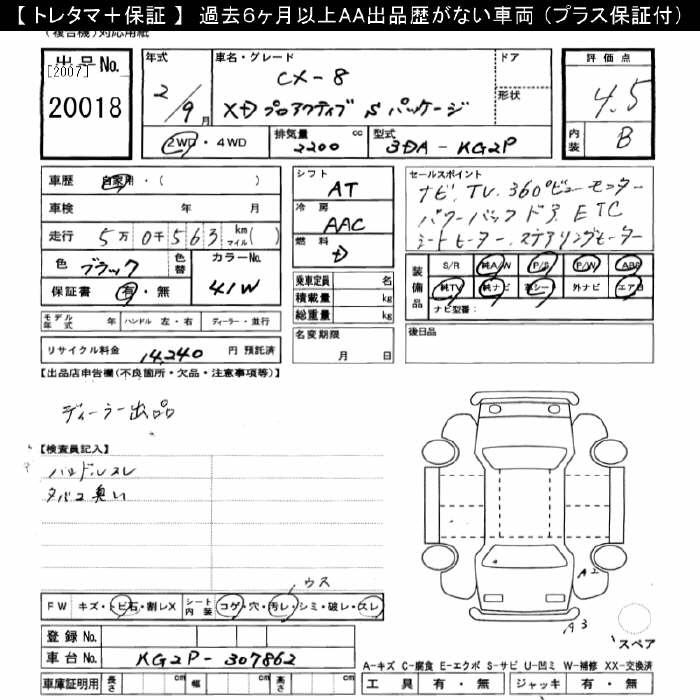 【 トレタマ＋保証 】 過去６ヶ月以上ＡＡ出品歴がない車両 （プラス保証付）
(複合機)対応用紙
出品 No.
[2007]
20018
年式
2/9月
車名・グレード
CX-8
XD プロアクティブ S パッケージ
ドア
形状
評価点
4.5
内装
B
2WD・4WD
排気量 2200 cc
型式 3DA-KG2P
車歴 自家用・( )
車検 年 月
走行 5万0千563 km マイル( )
色 ブラック
色替
カラーNo. 41W
保証書 有・無
シフト
AT
冷房
AAC
燃料
D
乗車定員 名
積載量 kg
総重量 kg
セールスポイント
ナビ. TV. 360°ビューモニター
パワーバックドア. ETC
シートヒーター. ステアリングヒーター
装備品
S/R 純A/W P/S P/W ABS
純TV 純ナビ 革シート 外ナビ エアB
ナビ型番：
モデル年式 年 ハンドル 左・右 ディーラー・並行
リサイクル料金 14,240 円 預託済
名変期限
月 日
後日品
【出品店申告欄(不良箇所・欠品・注意事項等)】
ディーラー出品
【検査員記入】
ハンドルスレ
タバコ臭い
ウス
FW キズ・トビ石・割レX シート内装 コゲ・穴・汚レ・シミ・破レ・スレ
A2
A3
スペア
登録 No.
車台 No. KG2P-307862
車庫証明用 長さ cm 幅 cm 高さ cm
A-キズ C-腐食 E-エクボ S-サビ U-凹ミ W-補修 XX-交換済
工具 有・無 ジャッキ 有・無